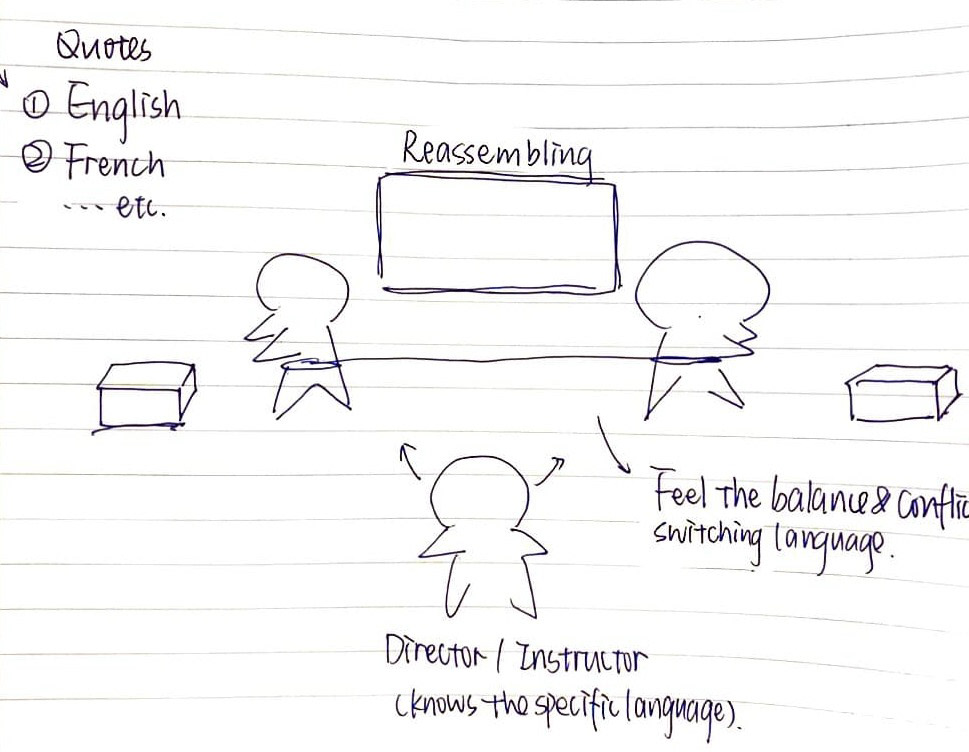 Quotes
① English
② French
... etc.
Reassembling
Feel the balance & conflic
switching language.
Director / Instructor
(knows the specific language).